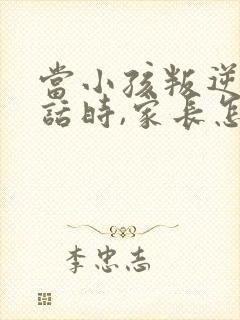 當小孩叛逆
話時,家長怎
李忠志